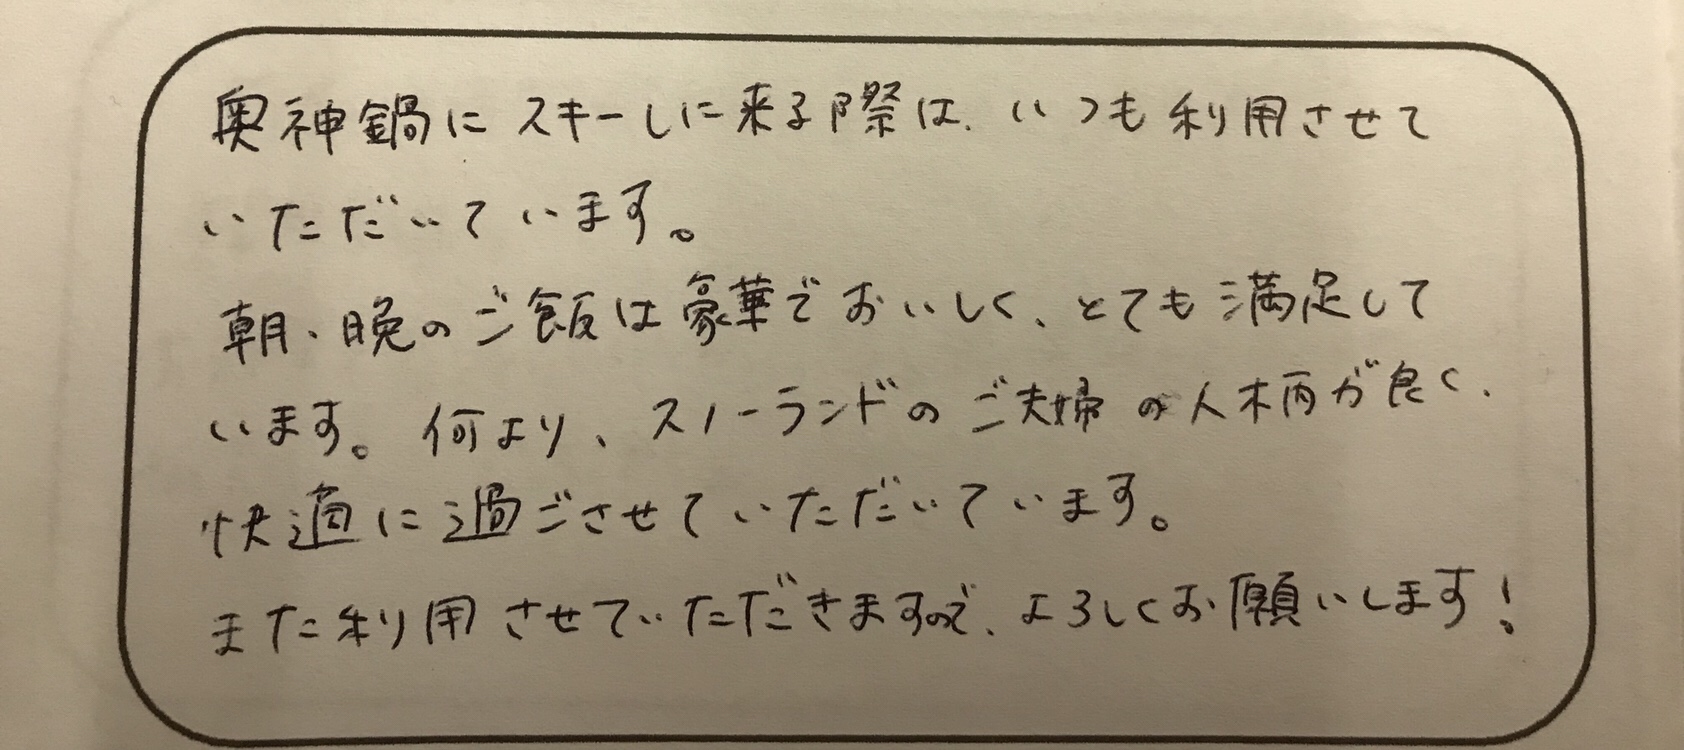 奥神鍋にスキーしに来る際は、いつも利用させて
いただいています。
朝・晩のご飯は豪華でおいしく、とても満足して
います。何より、スノーランドのご夫婦の人柄が良く、
快適に過ごさせていただいています。
また利用させていただきますので、よろしくお願いします!